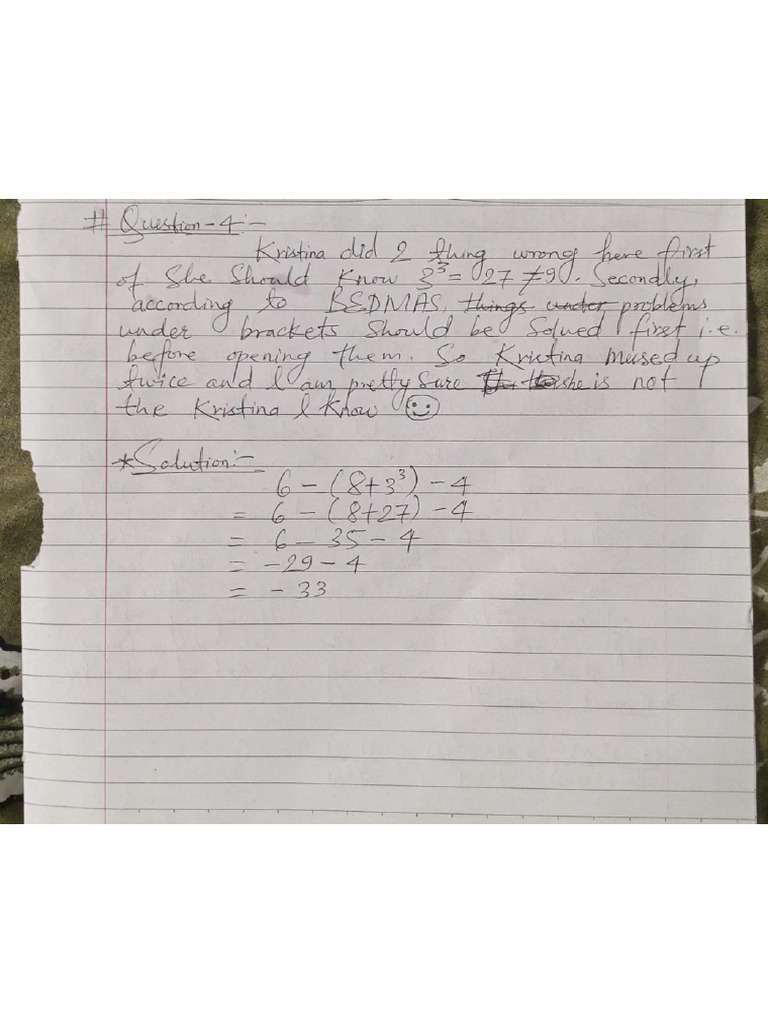 # Question-4:-
Kristina did 2 thing wrong here first
of She Should Know 3³ = 27 ≠ 9. Secondly,
according to BEDMAS, things under problems
under brackets should be Solved first i.e.
before opening them. So Kristina messed up
twice and I am pretty sure she is not
the Kristina I know ☺
*Solution:-
6 - (8+3³) - 4
= 6 - (8+27) - 4
= 6 - 35 - 4
= -29 - 4
= - 33